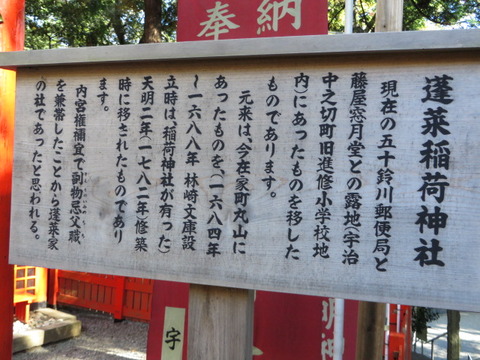 奉納
蓬莱稲荷神社
現在の五十鈴川郵便局と
藤屋窓月堂との露地(宇治
中之切町旧進修小学校地
内)にあったものを移した
ものであります。
元来は、今在家町丸山に
あったものを(一六八四年
〜一六八八年 林崎文庫設
立時は、稲荷神社が有った)
天明二年(一七八二年)修築
時に移されたものであり
ます。
内宮権禰宜で副物忌父職、
を兼帯したことから蓬莱家
の社であったと思われる。
宇